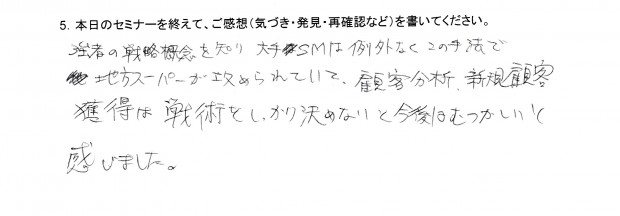 5. 本日のセミナーを終えて、ご感想（気づき・発見・再確認など）を書いてください。
強者の戦略概念を知り 大手SMは例外なくこの手法で
地方スーパーが攻められていて、顧客分析、新規顧客
獲得は戦術をしっかり決めないと今後はむつかしいと
感じました。